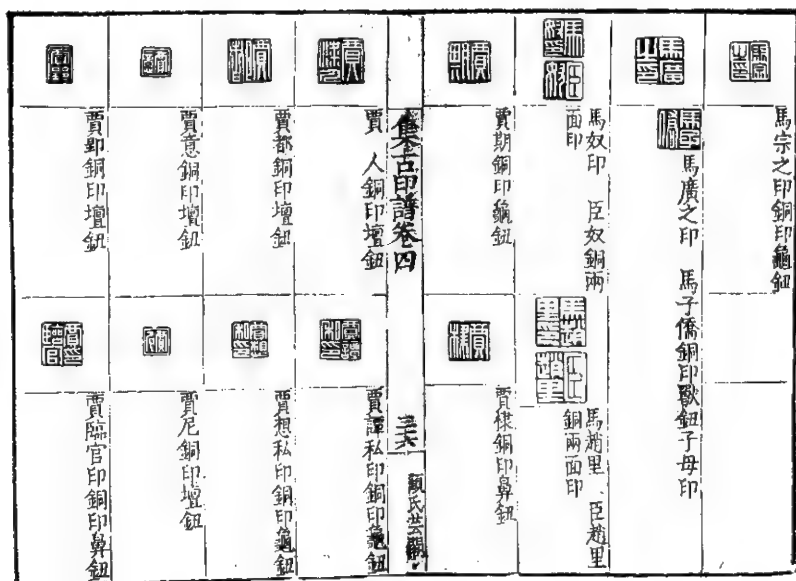 馬宗之印銅印龜鈕
馬廣之印 馬子僑銅印獸鈕子母印
馬奴印 臣奴銅兩
面印
馬趙里 臣趙里
銅兩面印
賈期銅印龜鈕
賈棣銅印鼻鈕
集古印譜卷四
三六
顧氏芸閣
賈 人銅印壇鈕
賈譚私印銅印龜鈕
賈都銅印壇鈕
賈想私印銅印龜鈕
賈意銅印壇鈕
賈尼銅印壇鈕
賈鄞銅印壇鈕
賈臨官印銅印鼻鈕